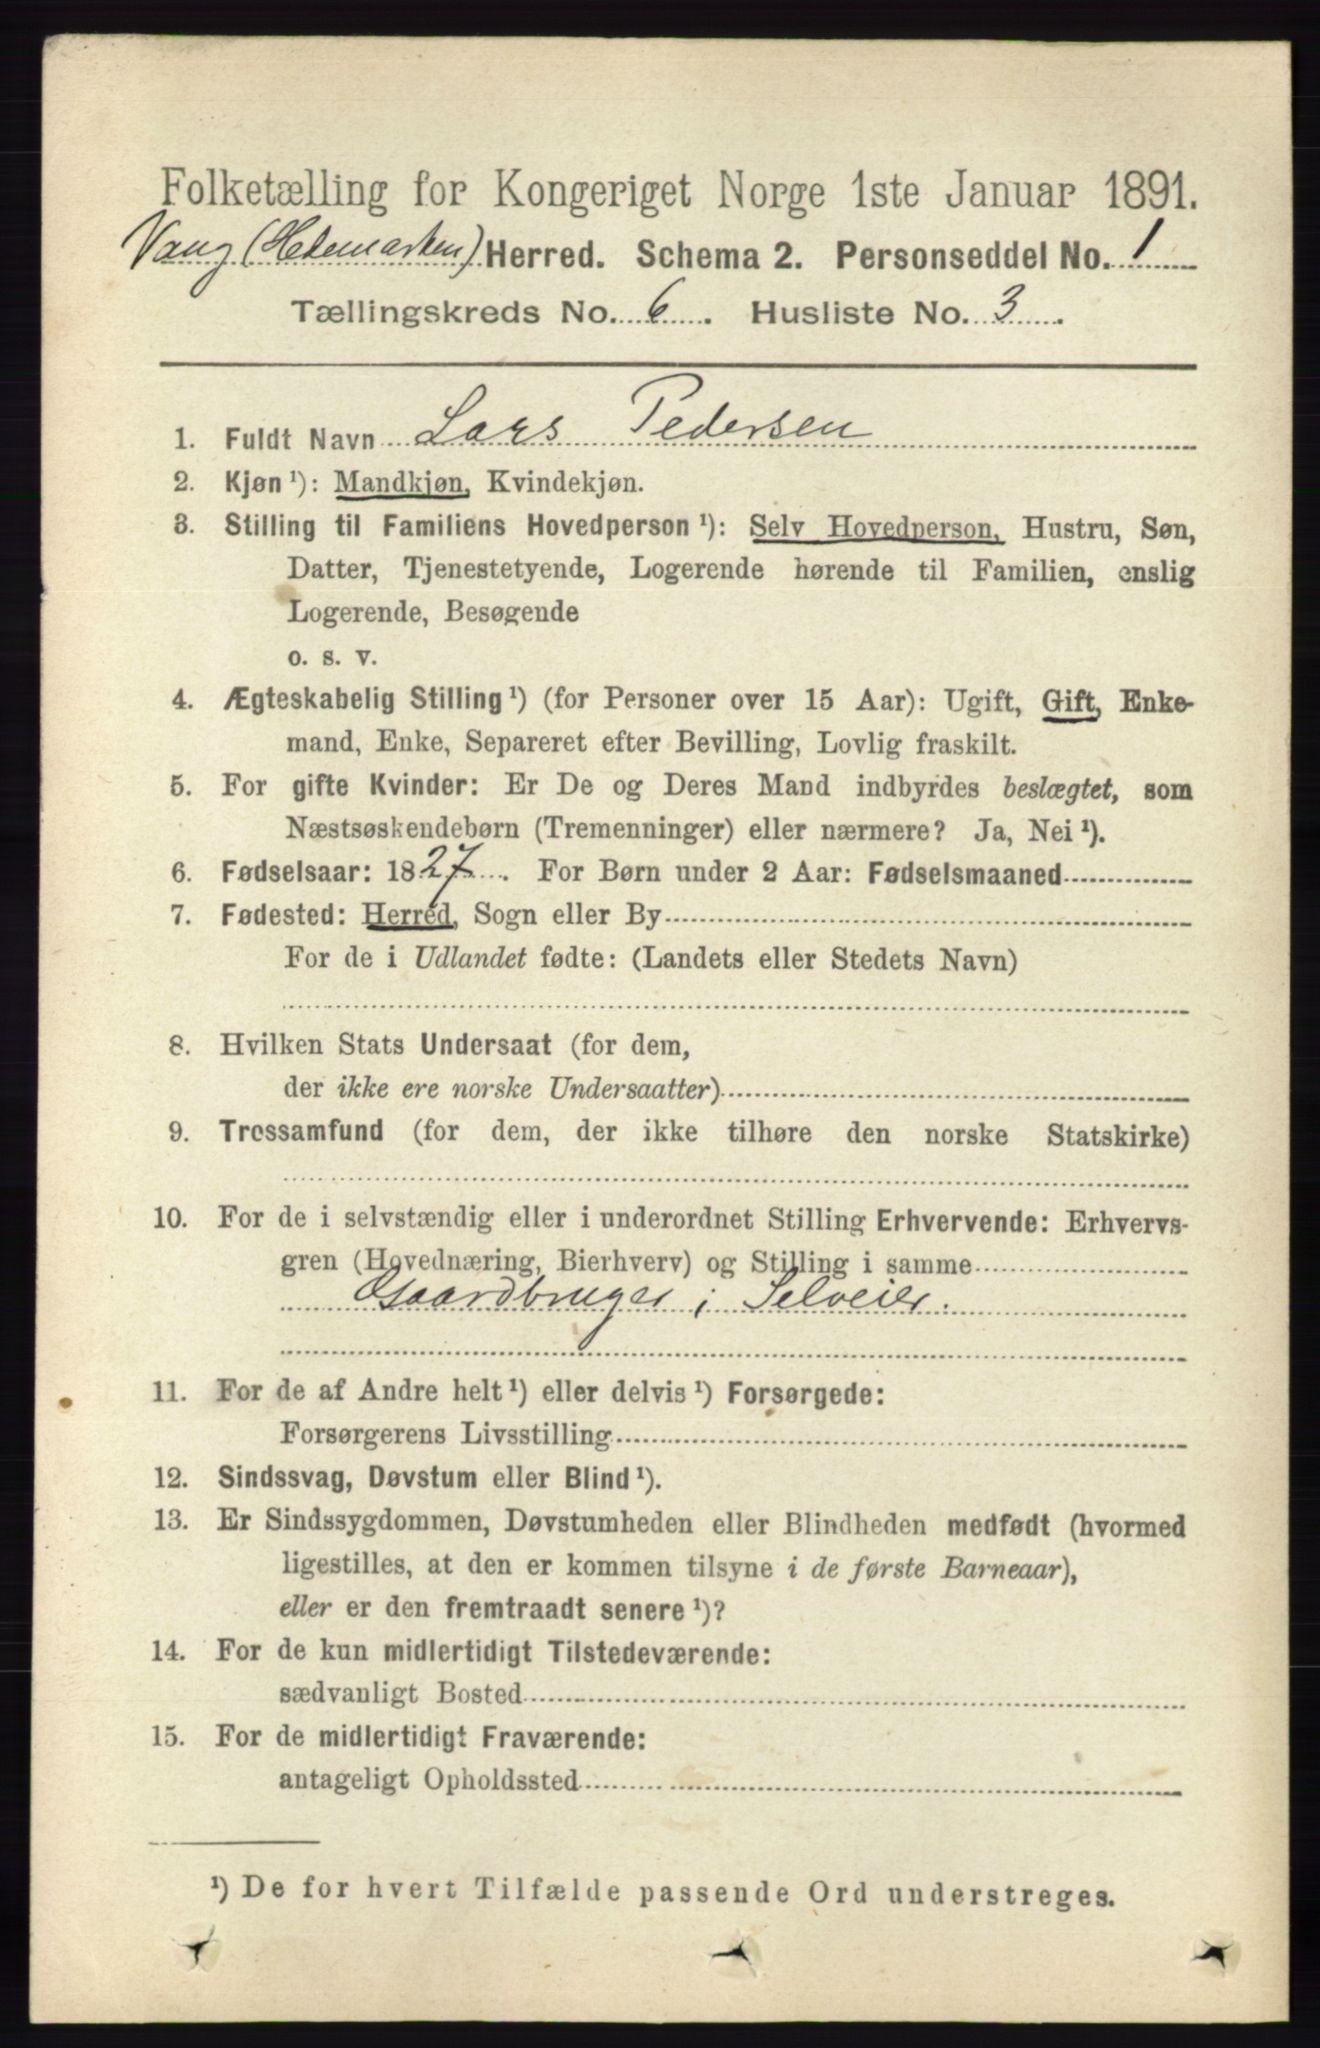 Folketælling for Kongeriget Norge 1ste Januar 1891.
Vang (Hedemarken) Herred. Schema 2. Personseddel No. 1
Tællingskreds No. 6. Husliste No. 3.
1. Fuldt Navn Lars Pedersen
2. Kjøn ¹): Mandkjøn, Kvindekjøn.
3. Stilling til Familiens Hovedperson ¹): Selv Hovedperson, Hustru, Søn,
Datter, Tjenestetyende, Logerende hørende til Familien, enslig
Logerende, Besøgende
o. s. v.
4. Ægteskabelig Stilling ¹) (for Personer over 15 Aar): Ugift, Gift, Enke-
mand, Enke, Separeret efter Bevilling, Lovlig fraskilt.
5. For gifte Kvinder: Er De og Deres Mand indbyrdes beslægtet, som
Næstsøskendebørn (Tremenninger) eller nærmere? Ja, Nei ¹).
6. Fødselsaar: 1827. For Børn under 2 Aar: Fødselsmaaned
7. Fødested: Herred, Sogn eller By
For de i Udlandet fødte: (Landets eller Stedets Navn)
8. Hvilken Stats Undersaat (for dem,
der ikke ere norske Undersaatter)
9. Trossamfund (for dem, der ikke tilhøre den norske Statskirke)
10. For de i selvstændig eller i underordnet Stilling Erhvervende: Erhvervs-
gren (Hovednæring, Bierhverv) og Stilling i samme
Gaardbruger; Selveier.
11. For de af Andre helt ¹) eller delvis ¹) Forsørgede:
Forsørgerens Livsstilling
12. Sindssvag, Døvstum eller Blind ¹).
13. Er Sindssygdommen, Døvstumheden eller Blindheden medfødt (hvormed
ligestilles, at den er kommen tilsyne i de første Barneaar),
eller er den fremtraadt senere ¹)?
14. For de kun midlertidigt Tilstedeværende:
sædvanligt Bosted
15. For de midlertidigt Fraværende:
antageligt Opholdssted
¹) De for hvert Tilfælde passende Ord understreges.